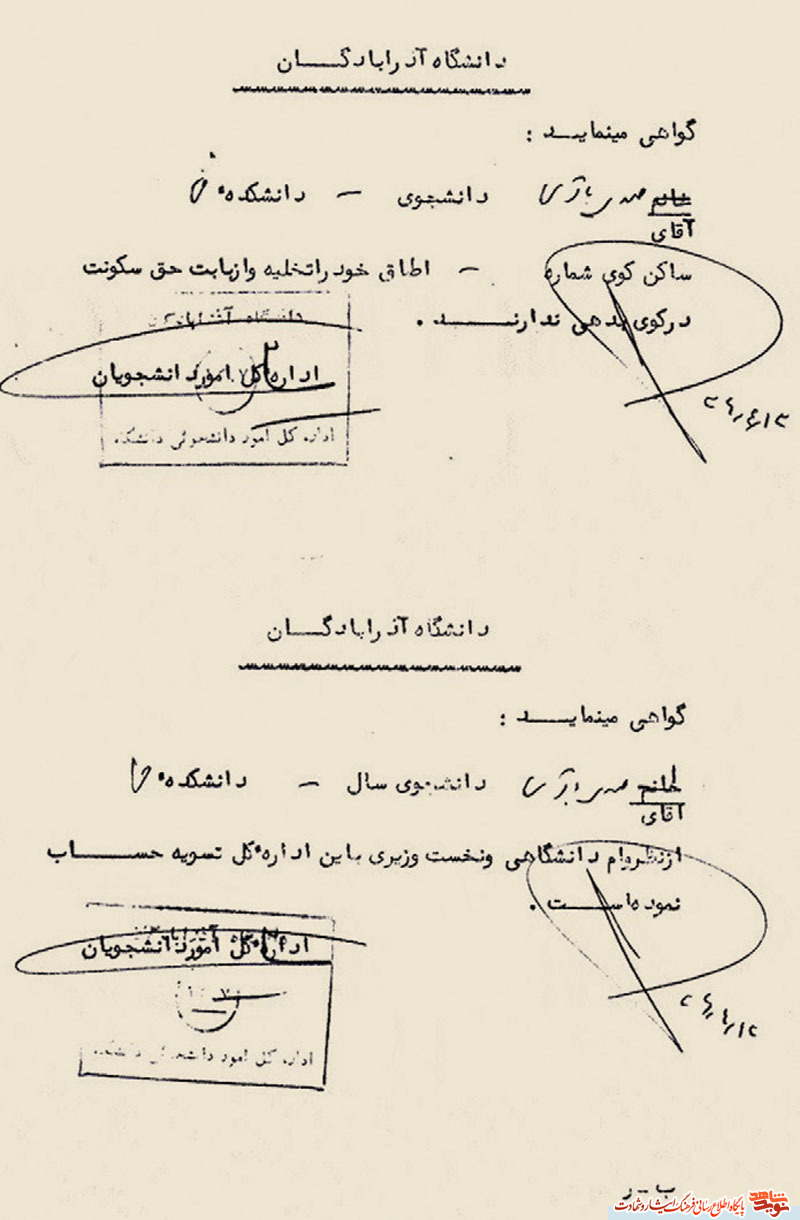 دانشگاه آذرابادگان
گواهی مینماید :
خانم مهدی باکری دانشجوی – دانشکده فنی
آقای
ساکن کوی شماره – اطاق خود را تخلیه و از بابت حق سکونت
در کوی بدهی ندارند .
اداره کل امور دانشجویان
اداره کل امور دانشجوئی دانشگاه
دانشگاه آذرابادگان
گواهی مینماید :
خانم مهدی باکری دانشجوی سال – دانشکده فنی
آقای
از نظر وام دانشگاهی و نخست وزیری با این اداره کل تسویه حساب
نموده است .
اداره کل امور دانشجویان
اداره کل امور دانشجوئی دانشگاه
ب - ر
نوید شاهد پایگاه اطلاع رسانی فرهنگ ایثار و شهادت